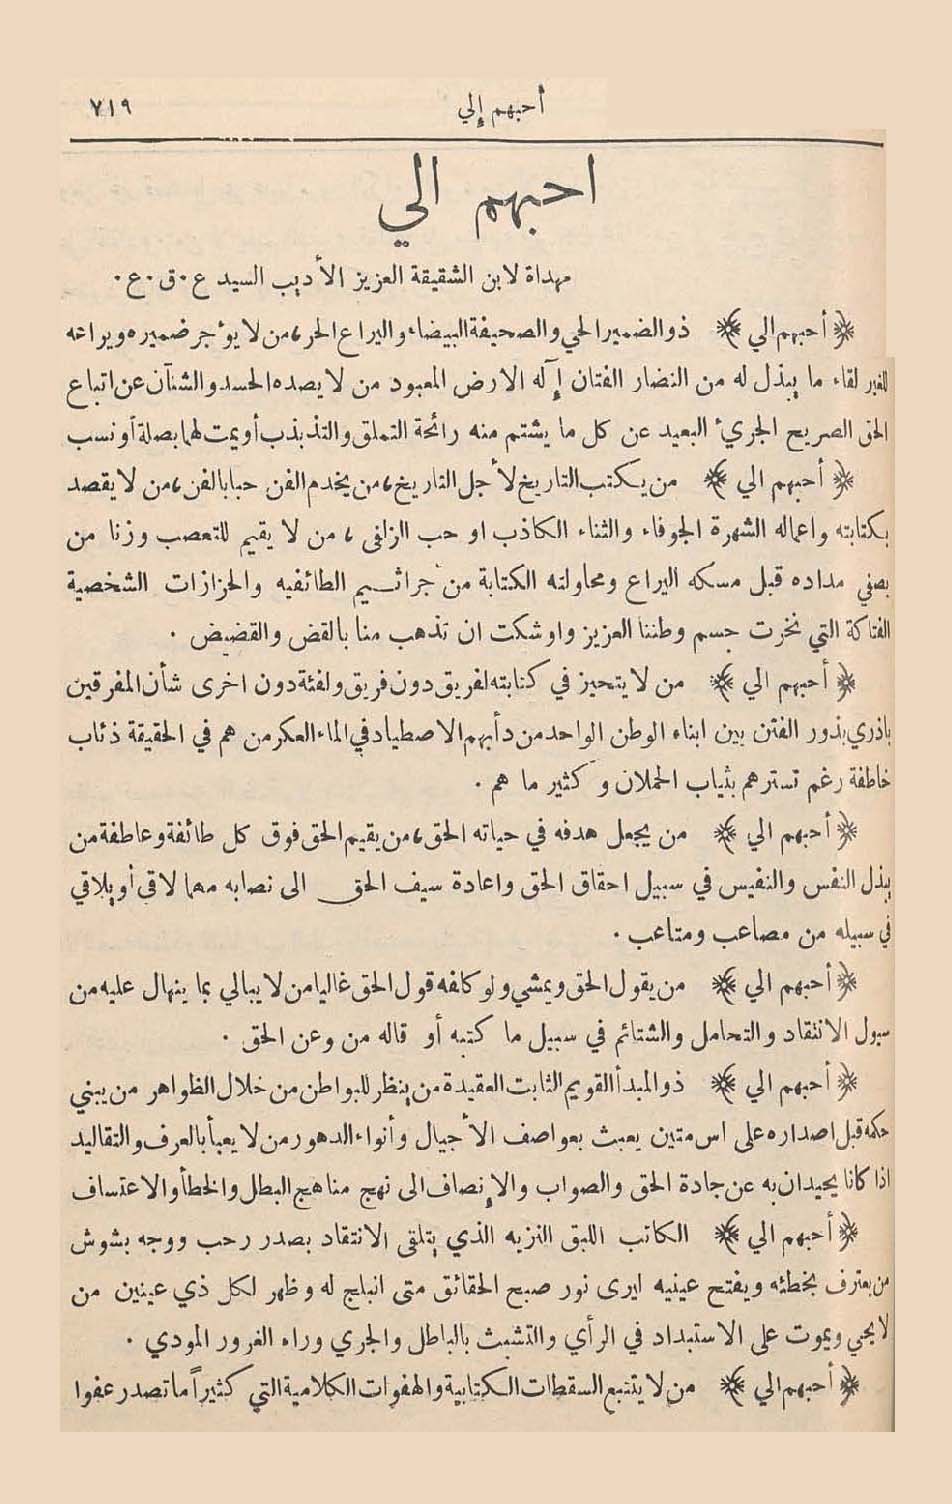 أحبهم إلي ٧١٩
احبهم الي
مهداة لابن الشقيقة العزيز الأديب السيد ع٠ق٠ع٠
﴿ أحبهم الي ﴾ ذو الضمير الحي والصحيفة البيضاء واليراع الحر، من لا يؤجر ضميره ويراعه
للغير لقاء ما يبذل له من النضار الفتان إآله الارض المعبود من لا يصده الحسد والشنآن عن اتباع
الحق الصريح الجريء البعيد عن كل ما يشتم منه رائحة التملق والتذبذب أو يمت لهما بصلة أو نسب
﴿ أحبهم الي ﴾ من يكتب التاريخ لأجل التاريخ، من يخدم الفن حبا بالفن، من لا يقصد
بكتابته واعماله الشهرة الجوفاء والثناء الكاذب او حب الزلفى، من لا يقيم للتعصب وزنا من
يصفي مداده قبل مسكه اليراع ومحاولته الكتابة من جراثيم الطائفيه والحزازات الشخصية
الفتاكة التي نخرت جسم وطننا العزيز واوشكت ان تذهب منا بالقض والقضيض .
﴿ أحبهم الي ﴾ من لا يتحيز في كتابته لفريق دون فريق ولفئة دون اخرى شأن المفرقين
باذري بذور الفتن بين ابناء الوطن الواحد من دأبهم الاصطياد في الماء العكر من هم في الحقيقة ذئاب
خاطفة رغم تسترهم بثياب الحملان وكثير ما هم .
﴿ أحبهم الي ﴾ من يجعل هدفه في حياته الحق، من يقيم الحق فوق كل طائفة وعاطفة من
يبذل النفس والنفيس في سبيل احقاق الحق واعادة سيف الحق الى نصابه مهما لاقى أو يلاقي
في سبيله من مصاعب ومتاعب .
﴿ أحبهم الي ﴾ من يقول الحق ويمشي ولو كلفه قول الحق غاليا من لا يبالي بما ينهال عليه من
سيول الانتقاد والتحامل والشتائم في سبيل ما كتبه أو قاله من وعن الحق .
﴿ أحبهم الي ﴾ ذو المبدأ القويم الثابت العقيدة من ينظر للبواطن من خلال الظواهر من يبني
حكمه قبل اصداره على اس متين يعبث بعواصف الأجيال وأنواء الدهور من لا يعبأ بالعرف والتقاليد
اذا كانا يحيدان به عن جادة الحق والصواب والإنصاف الى نهج مناهج البطل والخطأ والاعتساف
﴿ أحبهم الي ﴾ الكاتب اللبق النزيه الذي يتلقى الانتقاد بصدر رحب ووجه بشوش
من يعترف بخطئه ويفتح عينيه ليرى نور صبح الحقائق متى انبلج له وظهر لكل ذي عينين من
لا يحيى ويموت على الاستبداد في الرأي والتشبث بالباطل والجري وراء الغرور المودي .
﴿ أحبهم الي ﴾ من لا يتتبع السقطات الكتابية والهفوات الكلامية التي كثيراً ما تصدر عفوا